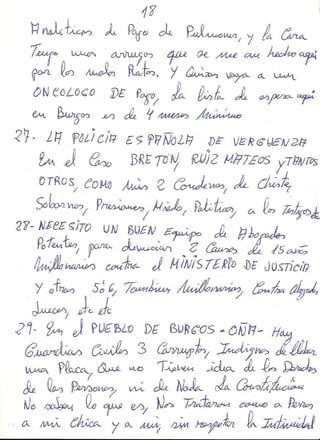 18
Analíticas de Pago de Pulmones, y la Cara
Tengo unas arrugas que se me han hecho aquí
por los malos Ratos. Y Quizas vaya a un
ONCOLOGO DE Pago, la lista de espera aquí
en Burgos es de 4 meses Mínimo
27- LA POLICIA ESPAÑOLA DE VERGUENZA
En el Caso BRETON, RUIZ MATEOS Y TANTOS
OTROS, COMO Mis 2 Condenas, de Chiste,
Sobornos, Presiones, Miedo, Politicas, a los Testigos etc
28- NECESITO UN BUEN Equipo de Abogados
Potentes, para denunciar 2 Causas de 15 años
Millonarias contra el MINISTERIO DE JUSTICIA
Y otras 5 ó 6, Tambien Millonarias, Contra Abogados
Jueces, etc etc
29- En el PUEBLO DE BURGOS - OÑA - Hay
Guardias Civiles 3 Corruptos, Indignos de llevar
una Placa, Que no Tienen idea de los Derechos
de las Personas, ni de Nada la Constitución
No saben lo que es, Nos Trataron como a Perros
a mi Chica y a mi, sin respetar la Intimidad